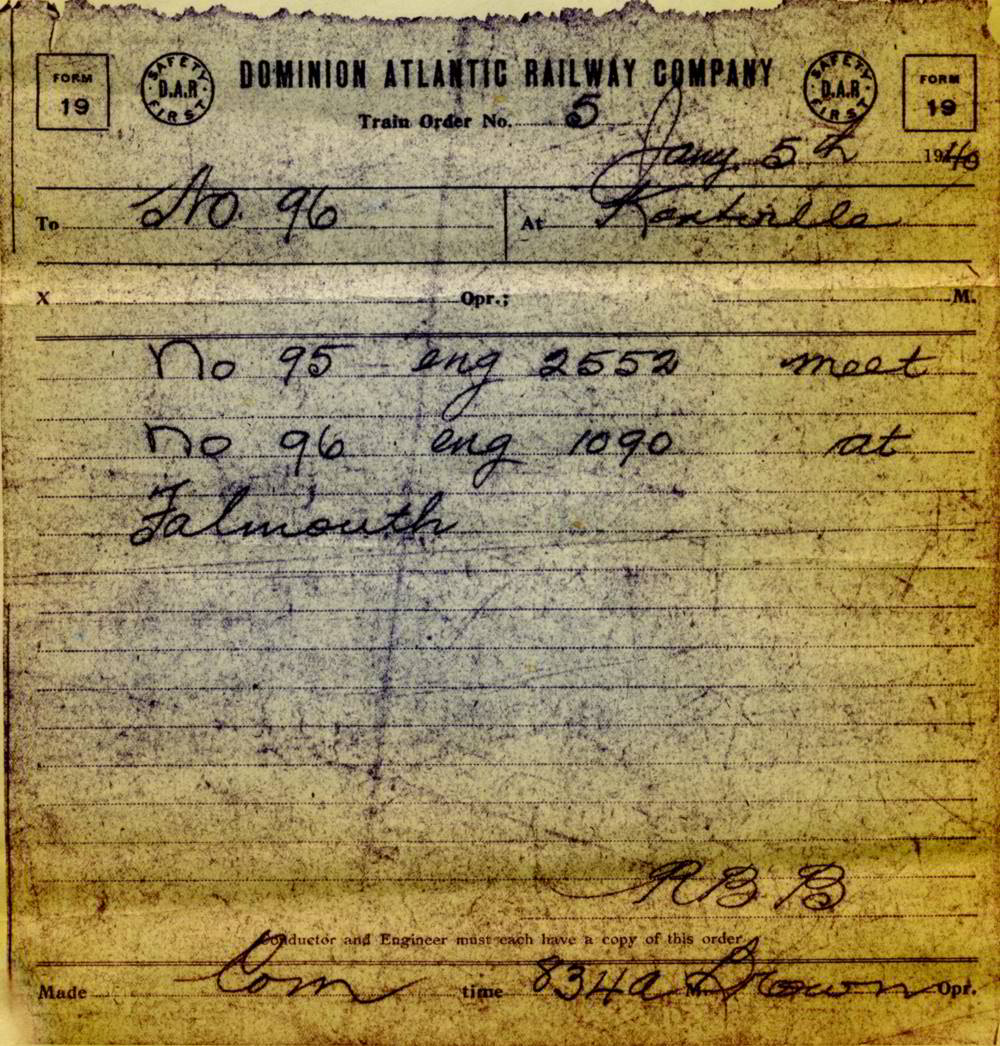 FORM 19 SAFETY D.A.R FIRST DOMINION ATLANTIC RAILWAY COMPANY SAFETY D.A.R FIRST FORM 19
Train Order No. 5
Jany. 5th 1940
To No. 96 At Kentville
X Opr.; M.
No 95 eng 2552 meet
No 96 eng 1090 at
Falmouth
RBB
Conductor and Engineer must each have a copy of this order
Made Com time 834a M. Brown Opr.